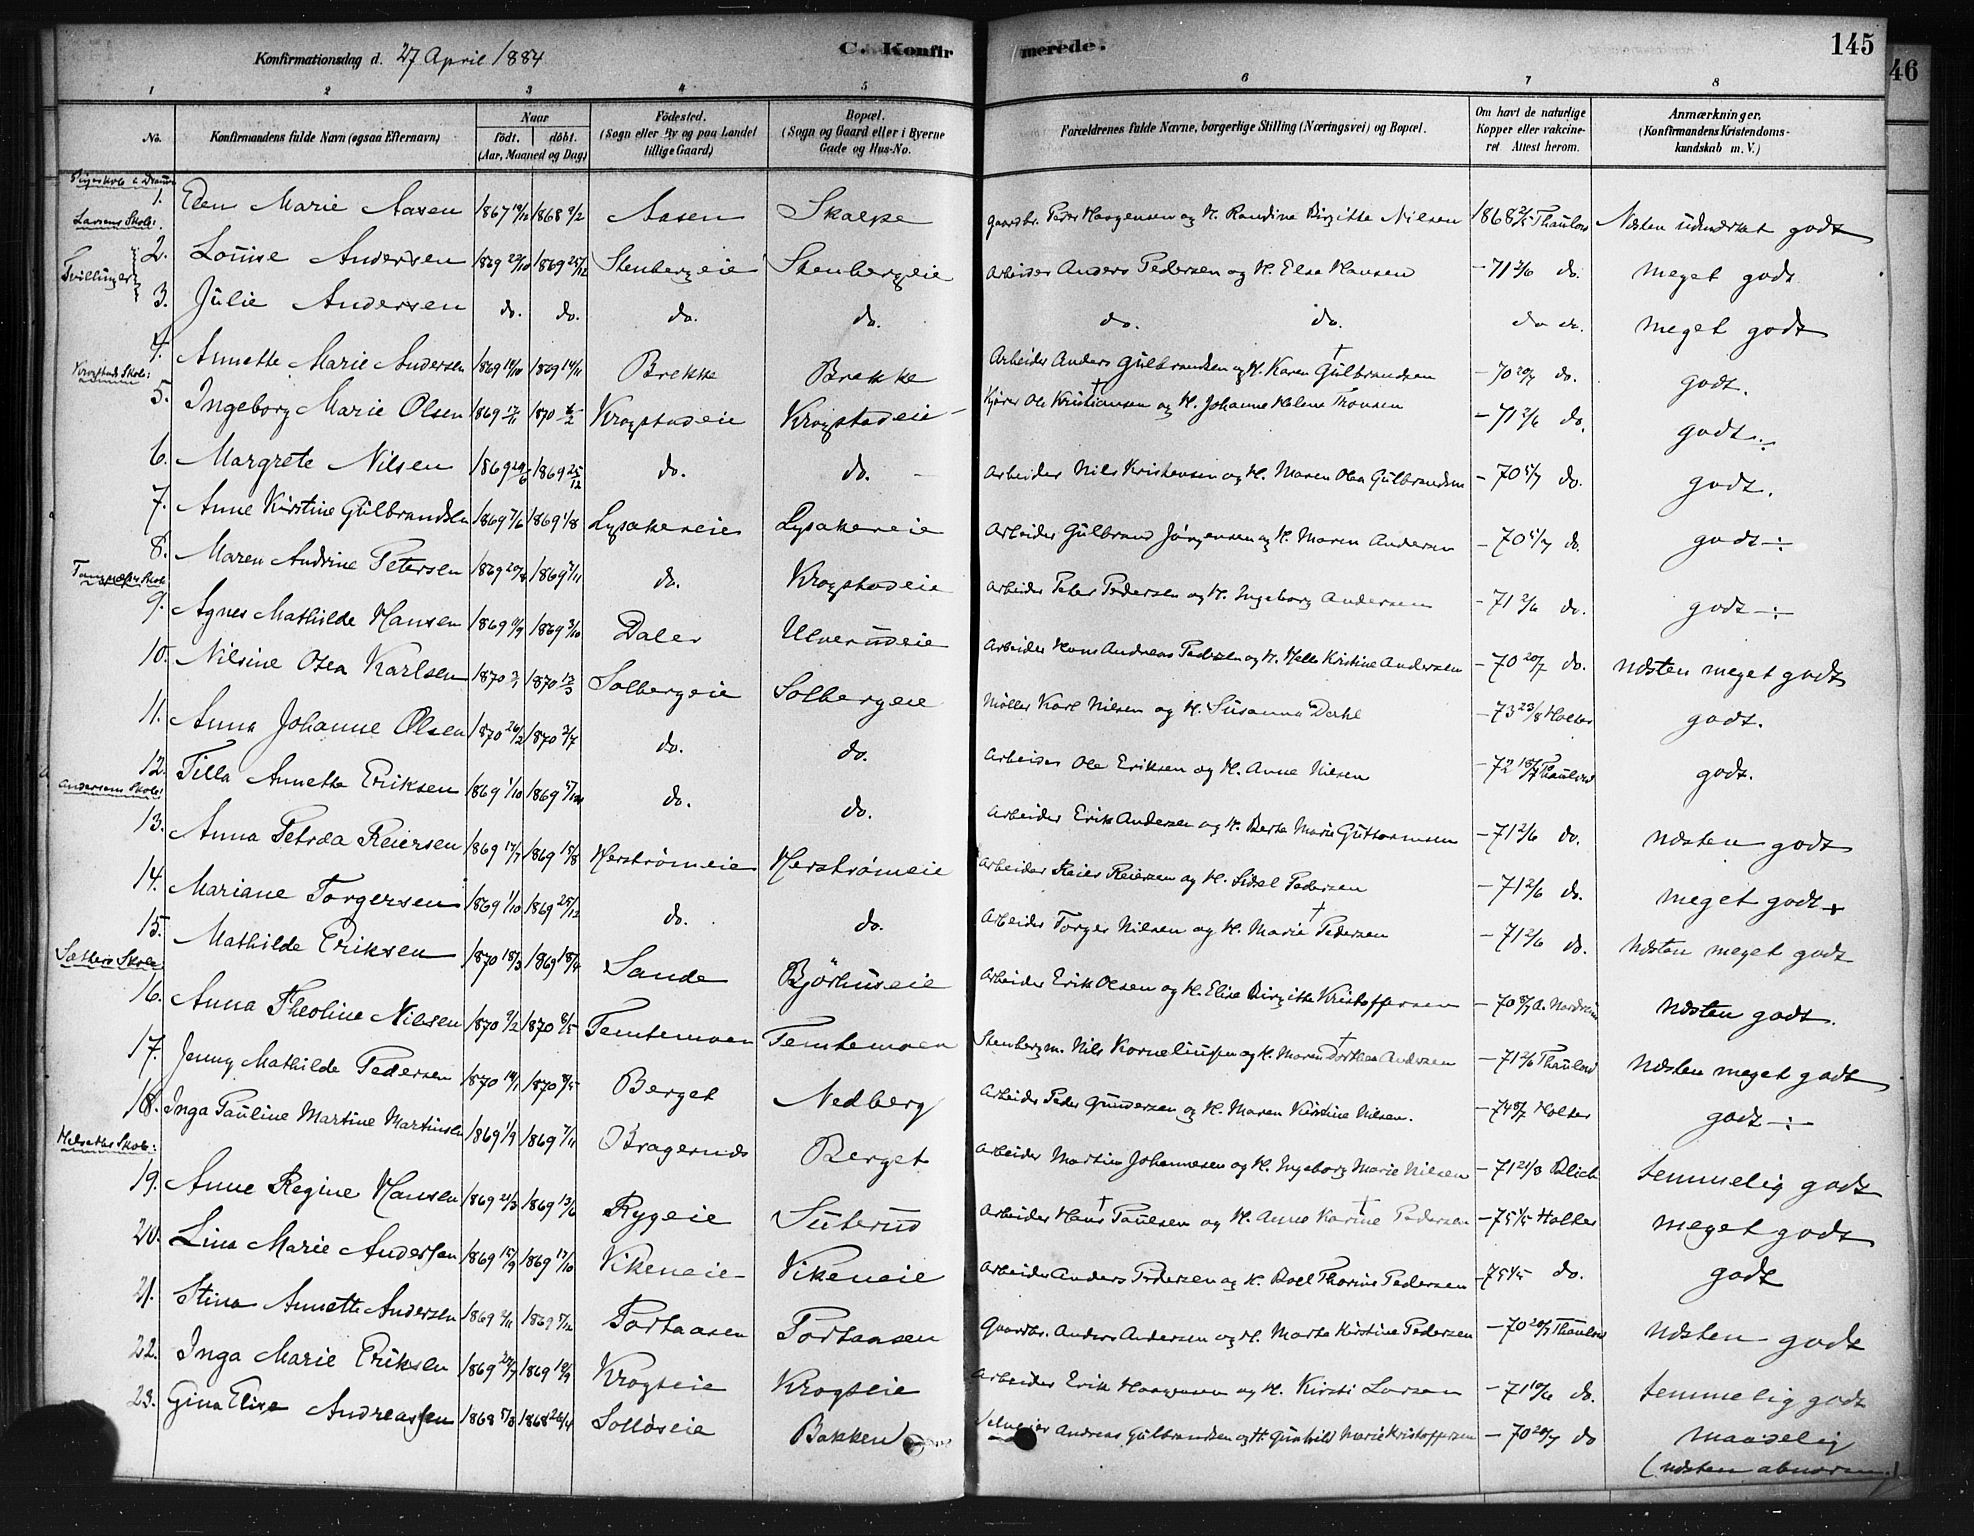 Konfirmationsdag d. 27 April 1884 C. Konfirmerede. 145
46
1 2 3 4 5 6 7 8
No. Konfirmandens fulde Navn (ogsaa Efternavn) Naar født. døbt. (Aar, Maaned og Dag) Fødested. (Sogn eller By og paa Landet tillige Gaard) Bopæl. (Sogn og Gaard eller i Byerne Gade og Hus-No. Forældrenes fulde Navne, borgerlige Stilling (Næringsvei) og Bopæl. Om havt de naturlige Kopper eller vakcineret Attest herom. Anmærkninger. (Konfirmandens Kristendomskundskab m. V.)
Pigeskole i Drammen
1. Elen Marie Aasen 1867 1868 9/2 Aasen Skalpe Gaardbr. Peder Haagensen og H. Randine Birgitte Nilsen 1868 Thaulow Næsten udmærket godt
Larsens Skole:
Tvillinger
2. Louise Andersen 1869 1869 25/12 Stenbergeie Stenbergeie Arbeider Anders Pedersen og H. Else Hansen - 71 2/6 do. meget godt
3. Julie Andersen do. do. do. do. do. do. do do. meget godt
4. Annette Marie Andersen 1869 1869 14/11 Brekke Brekke Arbeider Anders Gulbrandsen og H. Karen † Gulbrandsen - 70 20/7 do. godt.
Krogstad Skole:
5. Ingeborg Marie Olsen 1869 1870 Krogstadeie Krogstadeie Kjører Ole Kristiansen † og H. Johanne Helene Thonsen - 71 2/6 do. godt -:-
6. Margrete Nilsen 1869 29/6 1869 25/12 do. do. Arbeider Nils Kristensen og H. Maren Olea Gulbrandsen - 70 5/7 do. godt.
7. Anne Kirstine Gulbrandsen 1869 7/6 1869 1/8 Lysakereie Lysakereie Arbeider Gulbrand Jørgensen og H. Maren Andersen - 70 5/7 do. godt -:-
8. Maren Andrine Petersen 1869 20/8 1869 7/11 do. Krogstadeie Arbeider Peter Pedersen og H. Ingeborg Andersen - 71 2/6 do. godt -:-
9. Agnes Mathilde Hansen 1869 1869 3/10 Daler Ulverudeie Arbeider Hans Andreas Pedersen og H. Helle Kristine Andersen - 70 20/7 do. næsten meget godt
10. Nilsine Osea Karlsen 1870 1870 13/3 Solbergeie Solbergeie Møller Karl Nilsen og H. Susanna Dahl - 73 23/8 Holter godt.
11. Anna Johanne Olsen 1870 26/2 1870 3/7 do. do. Arbeider Ole Eriksen og H. Anne Nilsen - 72 Thaulow godt.
12. Tilla Annette Eriksen 1869 1/10 1869 do. do. Arbeider Erik Andersen og H. Berte Marie Guttormsen - 71 2/6 do. næsten godt
Andersens Skole:
13. Anna Petrea Reiersen 1869 17/7 1869 15/8 Herstrømeie Herstrømeie Arbeider Reier Reiersen og H. Sidsel Pedersen - 71 2/6 do. meget godt +
14. Mariane Torgersen 1869 1/10 1869 25/12 do. do. Arbeider Torger Nilsen og H. Marie † Pedersen - 71 2/6 do. næsten meget godt
15. Mathilde Eriksen 1870 18/3 1869 18/4 Sande Bjørhuseie Arbeider Erik Olsen og H. Elise Birgitte Kristoffersen - 70 næsten godt.
Sætters Skole
16. Anna Theoline Nilsen 1870 9/2 1870 8/5 Temtemoen Temtemoen Stenbergm. Nils Korneliussen og H. Maren Dorthea † Andersen - 71 2/6 Thaulow næsten meget godt
17. Jenny Mathilde Pedersen 1870 1870 8/5 Berget Nedberg Arbeider Peder Gundersen og H. Maren Kirstine Nilsen. - 74 Holter godt -:-
18. Inga Pauline Martine Martinsen 1869 1/9 1869 7/11 Bragernæs Berget Arbeider Martin Johannesen og H. Ingeborg Marie Nilsen - 71 Blich temmelig godt
19. Anne Regine Hansen 1869 21/3 1869 13/6 Rygeie Suterud Arbeider Hans † Paulsen og H. Anne Karine † Pedersen - 75 1/5 Holter meget godt
20. Lina Marie Anderssen 1869 15/9 1869 17/10 Vikeneie Vikeneie Arbeider Anders Pedersen og H. Thorine Pedersen - 75 1/5 do. godt
21. Stina Annette Andersen 1869 1869 Portaasen Portaasen Gaardbr. Anders Andersen og H. Marte Kirstine Pedersen - 70 20/7 Thaulow næsten godt
22. Inga Marie Eriksen 1869 1869 19/9 Krogseie Krogseie Arbeider Erik Haagensen og H. Kirsti Larsen - 71 do. temmelig godt
23. Gina Elise Andreassen 1868 1868 26/4 Solløseie Bakken Selveier Andreas Gulbrandsen og H. Gunhild Marie Kristoffersen - 70 20/7 do maadelig
(næsten abnorm.)